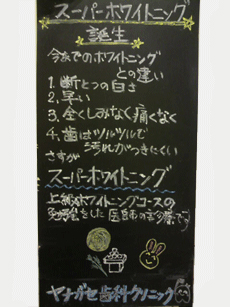 スーパーホワイトニング
誕生
今までのホワイトニング
との違い
1. 断とつの白さ
2. 早い
3. 全くしみなく痛くなく
4. 歯はツルツルで
汚れがつきにくい
さすが
スーパーホワイトニング
上級ホワイトニングコースの
勉強をした 医師の診療です
ヤナガセ歯科クリニック